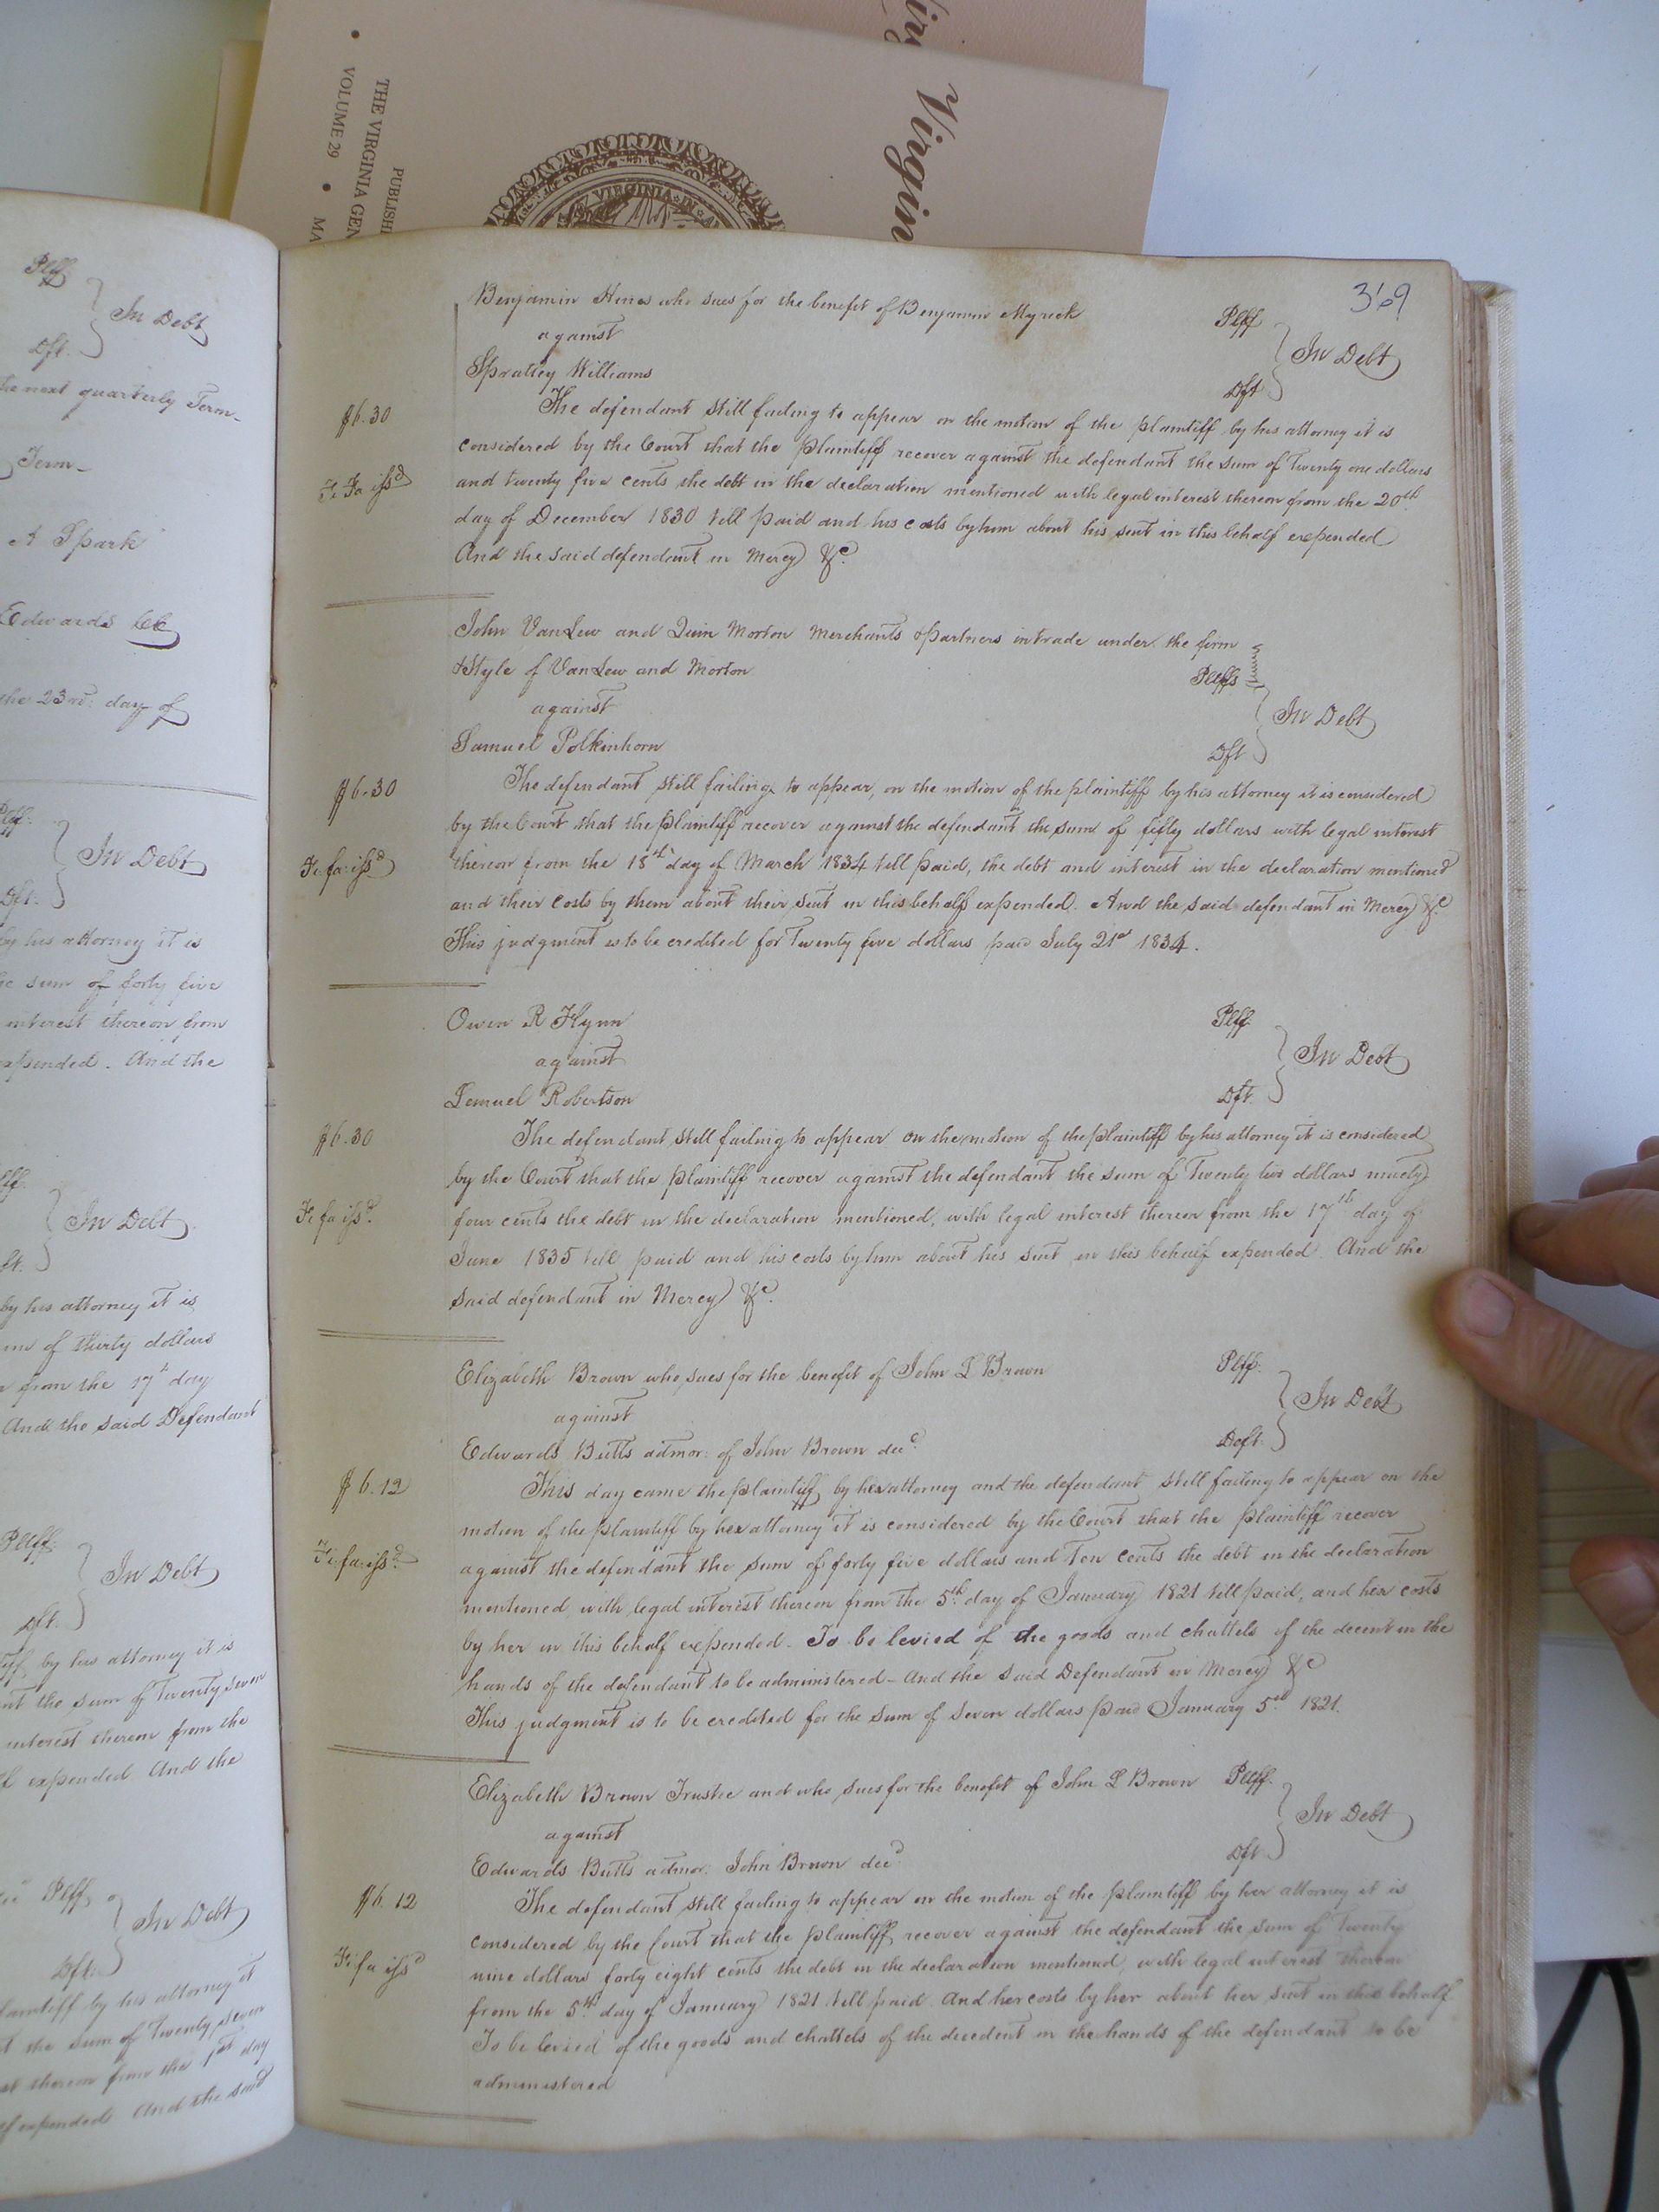 Virgin
PUBLISH
THE VIRGINIA GEN
VOLUME 29 • MA
VIRGINIA
Plff
In Debt
Dft.
the next quarterly Term-
Term-
A Spark
Edwards
the 23rd. day of
Plff.
In Debt
Dft.
by his attorney it is
sum of forty five
interest thereon from
expended. And the
In Debt
by his attorney it is
of thirty dollars
from the 17th day
And the said Defendant
Plff.
In Debt
Dft.
by his attorney it is
the sum of Twenty seven
interest thereon from the
expended And the
Plff
In Debt
Dft.
plaintiff by his attorney it
the sum of Twenty seven
thereon from the 1st day
expended And the said
369
Benjamin Hines who sues for the benefit of Benjamin Myrick Plff
against
In Debt
Spratley Williams Dft
$6.30
The defendant still failing to appear on the motion of the plaintiff by his attorney it is
considered by the Court that the Plaintiff recover against the defendant the sum of Twenty one dollars
Fi Fa issd
and twenty five cents the debt in the declaration mentioned with legal interest thereon from the 20th.
day of December 1830 till paid and his costs by him about his suit in this behalf expended
And the said defendant in Mercy &c.
John VanLew and Quin Morton Merchants & partners in trade under the firm
& Style of VanLew and Morton Plffs
against
In Debt
Samuel Polkinhorn Dft
$6.30
The defendant still failing to appear, on the motion of the plaintiff by his attorney it is considered
by the Court that the Plaintiff recover against the defendant the sum of fifty dollars with legal interest
Fi. fa: issd
thereon from the 18th day of March 1834 till paid, the debt and interest in the declaration mentioned
and their costs by them about their suit in this behalf expended. And the said defendant in Mercy &c
This judgment is to be credited for Twenty five dollars paid July 21st 1834.
Owen R Flynn Plff.
against
In Debt
Lemuel Robertson Dft.
$6.30
The defendant still failing to appear on the motion of the plaintiff by his attorney it is considered
by the Court that the plaintiff recover against the defendant the sum of Twenty two dollars ninety
Fi fa issd.
four cents the debt in the declaration mentioned, with legal interest thereon from the 17th day of
June 1835 till paid and his costs by him about his suit in this behalf expended. And the
said defendant in Mercy &c.
Elizabeth Brown who sues for the benefit of John L Brown Plff.
against
In Debt
Edwards Butts admor: of John Brown decd. Deft.
$6.12
This day came the plaintiff by her attorney and the defendant still failing to appear on the
motion of the plaintiff by her attorney it is considered by the Court that the plaintiff recover
Fi: fa: issd.
against the defendant the sum of forty five dollars and Ten cents the debt in the declaration
mentioned with legal interest thereon from the 5th day of January 1821 till paid, and her costs
by her in this behalf expended. To be levied of the goods and chattels of the decent in the
hands of the defendant to be administered - And the said Defendant in Mercy &c
This judgment is to be credited for the sum of seven dollars paid January 5th 1821.
Elizabeth Brown Trustee and who sues for the benefit of John L Brown Plff.
against
In Debt
Edwards Butts admor. John Brown decd Dft.
$6.12
The defendant still failing to appear on the motion of the plaintiff by her attorney it is
considered by the Court that the plaintiff recover against the defendant the sum of Twenty
Fi fa issd
nine dollars forty eight cents the debt in the declaration mentioned, with legal interest thereon
from the 5th day of January 1821 till paid. And her costs by her about her suit in this behalf
To be levied of the goods and chattels of the decedent in the hands of the defendant to be
administered